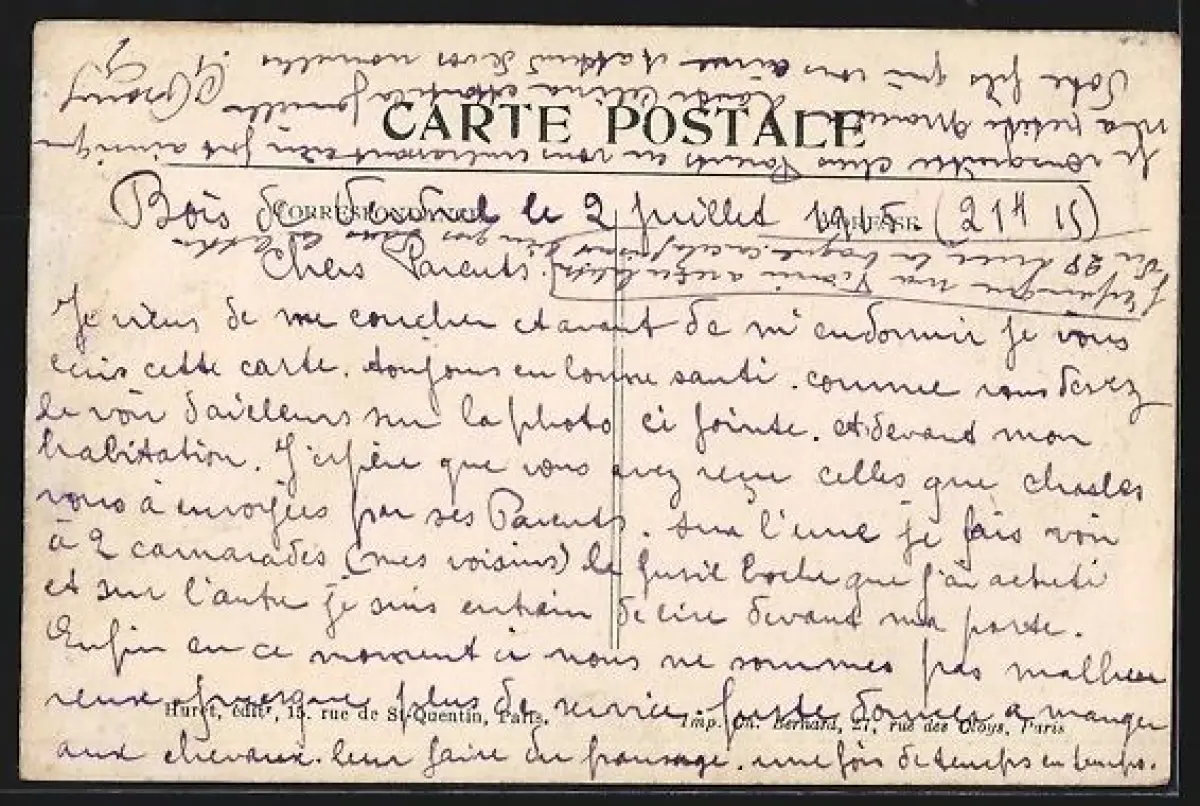 CARTE POSTALE
CORRESPONDANCE
ADRESSE
Bois de le 2 Juillet 1915. (21H 15)
Chers Parents.
Je viens de me coucher et avant de m'endormir je vous
ecris cette carte. toujours en bonne santé. comme vous devez
le voir d'ailleurs sur la photo ci jointe. et devant mon
habitation. J'espère que vous avez reçu celles que charles
vous à envoyées par ses Parents. Sur l'une je fais voir
à 2 camarades (mes voisins) le fusil boche que j'ai acheté
et sur l'autre je suis entrain de lire devant ma porte.
Enfin en ce moment ci nous ne sommes pas malheu
reux presque plus de service juste donner a manger
aux chevaux. leur faire du pansage. une fois de temps en temps.
Hurst, édit', 15, rue de St-Quentin, Paris.
Imp. Ch. Bernard, 27, rue des Cloys, Paris
Je vous quitte chers Parents en vous embrassant bien fort ainsi que
ma petite et la famille
Votre fils qui vous aime et attend de vos nouvelles